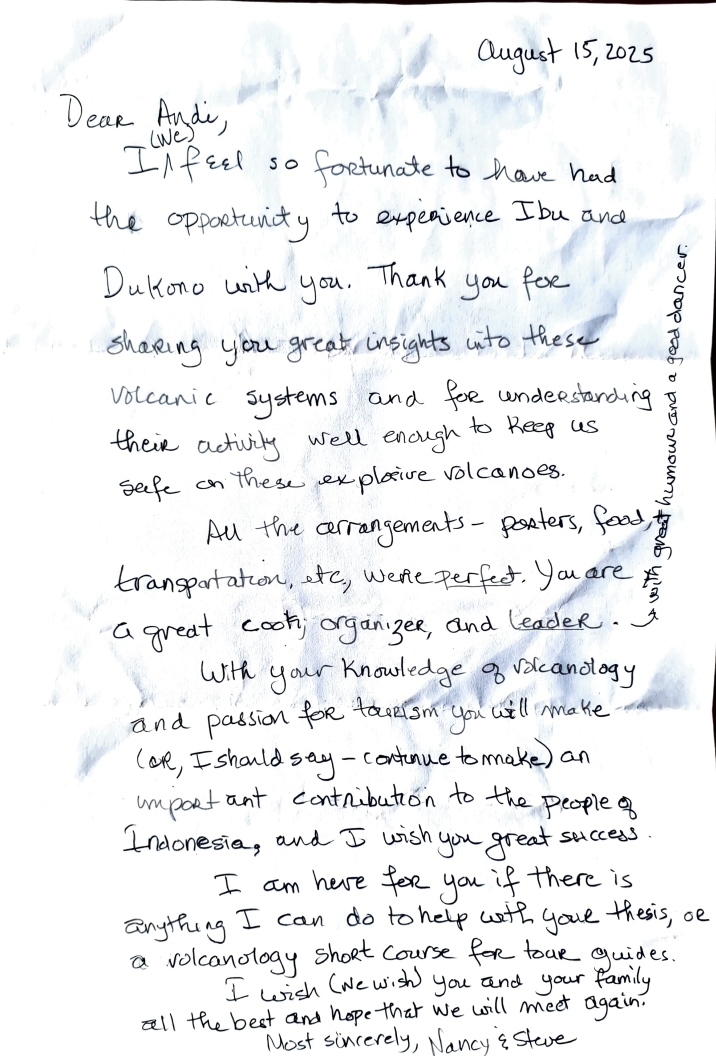 August 15, 2025
Dear Andi,
(We)
I ∧ feel so fortunate to have had
the opportunity to experience Ibu and
Dukono with you. Thank you for
sharing your great insights into these
volcanic systems and for understanding
their activity well enough to keep us
safe on these explosive volcanoes.
All the arrangements - porters, food,
transportation, etc, were perfect. You are
a great cook, organizer, and leader.
with great humour and a good dancer.
With your knowledge of volcanology
and passion for tourism you will make
(or, I should say - continue to make) an
important contribution to the people of
Indonesia, and I wish you great success.
I am here for you if there is
anything I can do to help with your thesis, or
a volcanology short course for tour guides.
I wish (we wish) you and your family
all the best and hope that we will meet again.
Most sincerely, Nancy & Steve